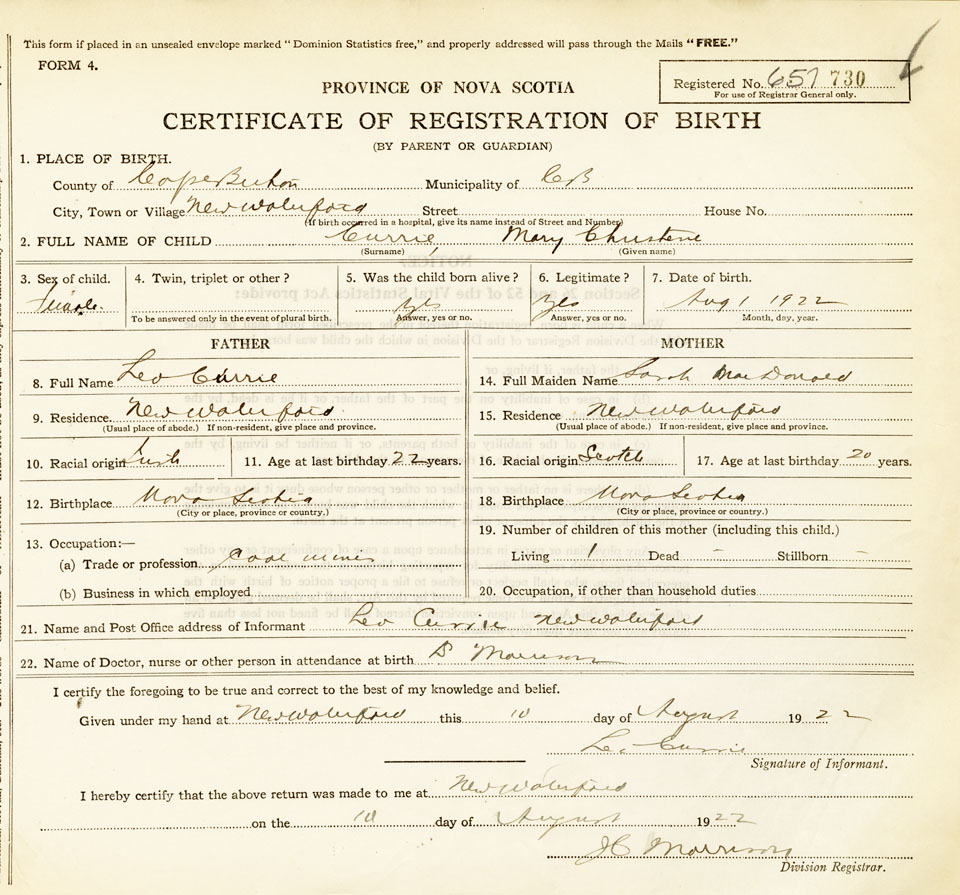 This form if placed in an unsealed envelope marked "Dominion Statistics free," and properly addressed will pass through the Mails "FREE."
FORM 4.
Registered No. 657 730
For use of Registrar General only.
PROVINCE OF NOVA SCOTIA
CERTIFICATE OF REGISTRATION OF BIRTH
(BY PARENT OR GUARDIAN)
1. PLACE OF BIRTH.
County of Cape Breton Municipality of CB
City, Town or Village New Waterford Street House No.
(If birth occurred in a hospital, give its name instead of Street and Number)
2. FULL NAME OF CHILD Currie, Mary Christene
(Surname) (Given name)
3. Sex of child. 4. Twin, triplet or other? 5. Was the child born alive? 6. Legitimate? 7. Date of birth.
Female. yes yes Aug 1 1922
To be answered only in the event of plural birth. Answer, yes or no. Answer, yes or no. Month, day, year.
FATHER MOTHER
8. Full Name Leo Currie 14. Full Maiden Name Sarah MacDonald
9. Residence. New Waterford 15. Residence New Waterford
(Usual place of abode.) If non-resident, give place and province. (Usual place of abode.) If non-resident, give place and province.
10. Racial origin Irish 11. Age at last birthday 22 years. 16. Racial origin Scotch 17. Age at last birthday 20 years.
12. Birthplace Nova Scotia 18. Birthplace Nova Scotia
(City or place, province or country.) (City or place, province or country.)
13. Occupation:— 19. Number of children of this mother (including this child.)
(a) Trade or profession Coal miner Living 1 Dead – Stillborn –
(b) Business in which employed 20. Occupation, if other than household duties
21. Name and Post Office address of Informant Leo Currie New Waterford
22. Name of Doctor, nurse or other person in attendance at birth Morrison
I certify the foregoing to be true and correct to the best of my knowledge and belief.
Given under my hand at New Waterford this 10 day of August 1922
Leo Currie
Signature of Informant.
I hereby certify that the above return was made to me at New Waterford
on the 10 day of August 1922
JC Morrison
Division Registrar.